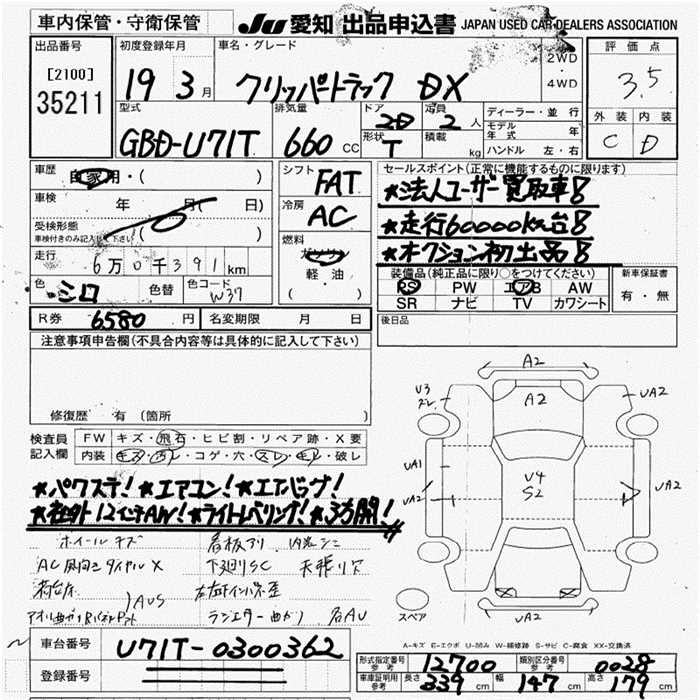 車内保管・守衛保管
JU 愛知 出品申込書 JAPAN USED CAR DEALERS ASSOCIATION
出品番号
[2100]
35211
初度登録年月
19 3 月
車名・グレード
クリッパートラック DX
2WD
・
4WD
評価点
3.5
外装 内装
C D
型式
GBD-U71T
排気量
660 CC
ドア
2D
定員
2 人
形状
T
積載
kg
ディーラー・並行
モデル年式 年
ハンドル 左・右
車歴
自家用・( )
車検 年 月( 日)
受検形態
車検付きのみ記入して下さい ( )
走行
6万0千391km
色
シロ
色替
色コード
W37
シフト
FAT
冷房
AC
燃料
ガソリン
軽・油
( )
セールスポイント(正常に機能するものに限ります)
★法人ユーザー買取車!
★走行60000km台!
★オークション初出品!
装備品(純正品に限り○をつけてください)
PS PW エアB AW
SR ナビ TV カワシート
新車保証書
有・無
R券 6580 円
名変期限 月 日
後日品
注意事項申告欄(不具合内容等は具体的に記入して下さい)
修復歴 有 (箇所 )
検査員
記入欄
FW キズ・飛石・ヒビ割・リペア跡・X要
内装 キズ・汚レ・コゲ・穴・スレ・モレ・破レ
★パワステ!★エアコン!★エアバッグ!
★社外12インチAW!★ライトレベリング!★3方開!
ホイールキズ 看板アリ 内装シミ
AC風向きダイヤルX 下廻りSC 天張り穴
荷台床 AUS
ラジエター曲がり
A2
A2
U3
スレ
UA2
UA1
UA2
U4
S2
UA2
UA2
スペア
A-キズ E-エクボ U-凹み W-補修跡 S-サビ C-腐食 XX-交換済
車台番号
U71T-0300362
登録番号
形式指定番号
参考
12700
類別区分番号
参考
0028
車庫証明用
参考
長さ 339 cm 幅 147 cm 高さ 179 cm